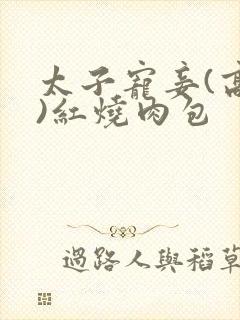 太子寵妾(高
)紅燒肉包
過路人與稻草